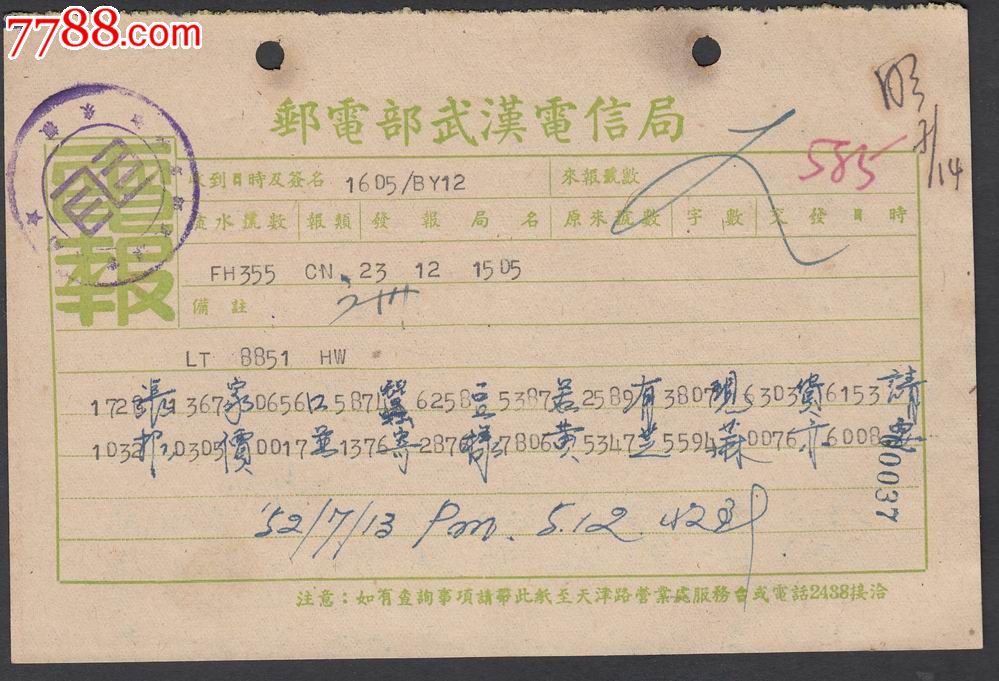 7788.com
郵電部武漢電信局
明
7/14
585
電報
收到日時及簽名 1605/BY12 來報號數
流水號數 報類 發報局名 原來號數 字數 交發日時
FH355 CN 23 12 1505
備註
LT 8851 HW
1728張 1367家 0656口 5871蠶 6258豆 5387若 2589有 3807現 6303貨 6153請
1032 0305價 0017並 1376寄 2876樣 7806黃 5347芝 5594蔴 0076亦 6008要
00037
'52/7/13 Pm. 5.12
注意：如有查詢事項請帶此紙至天津路營業處服務台或電話2438接洽